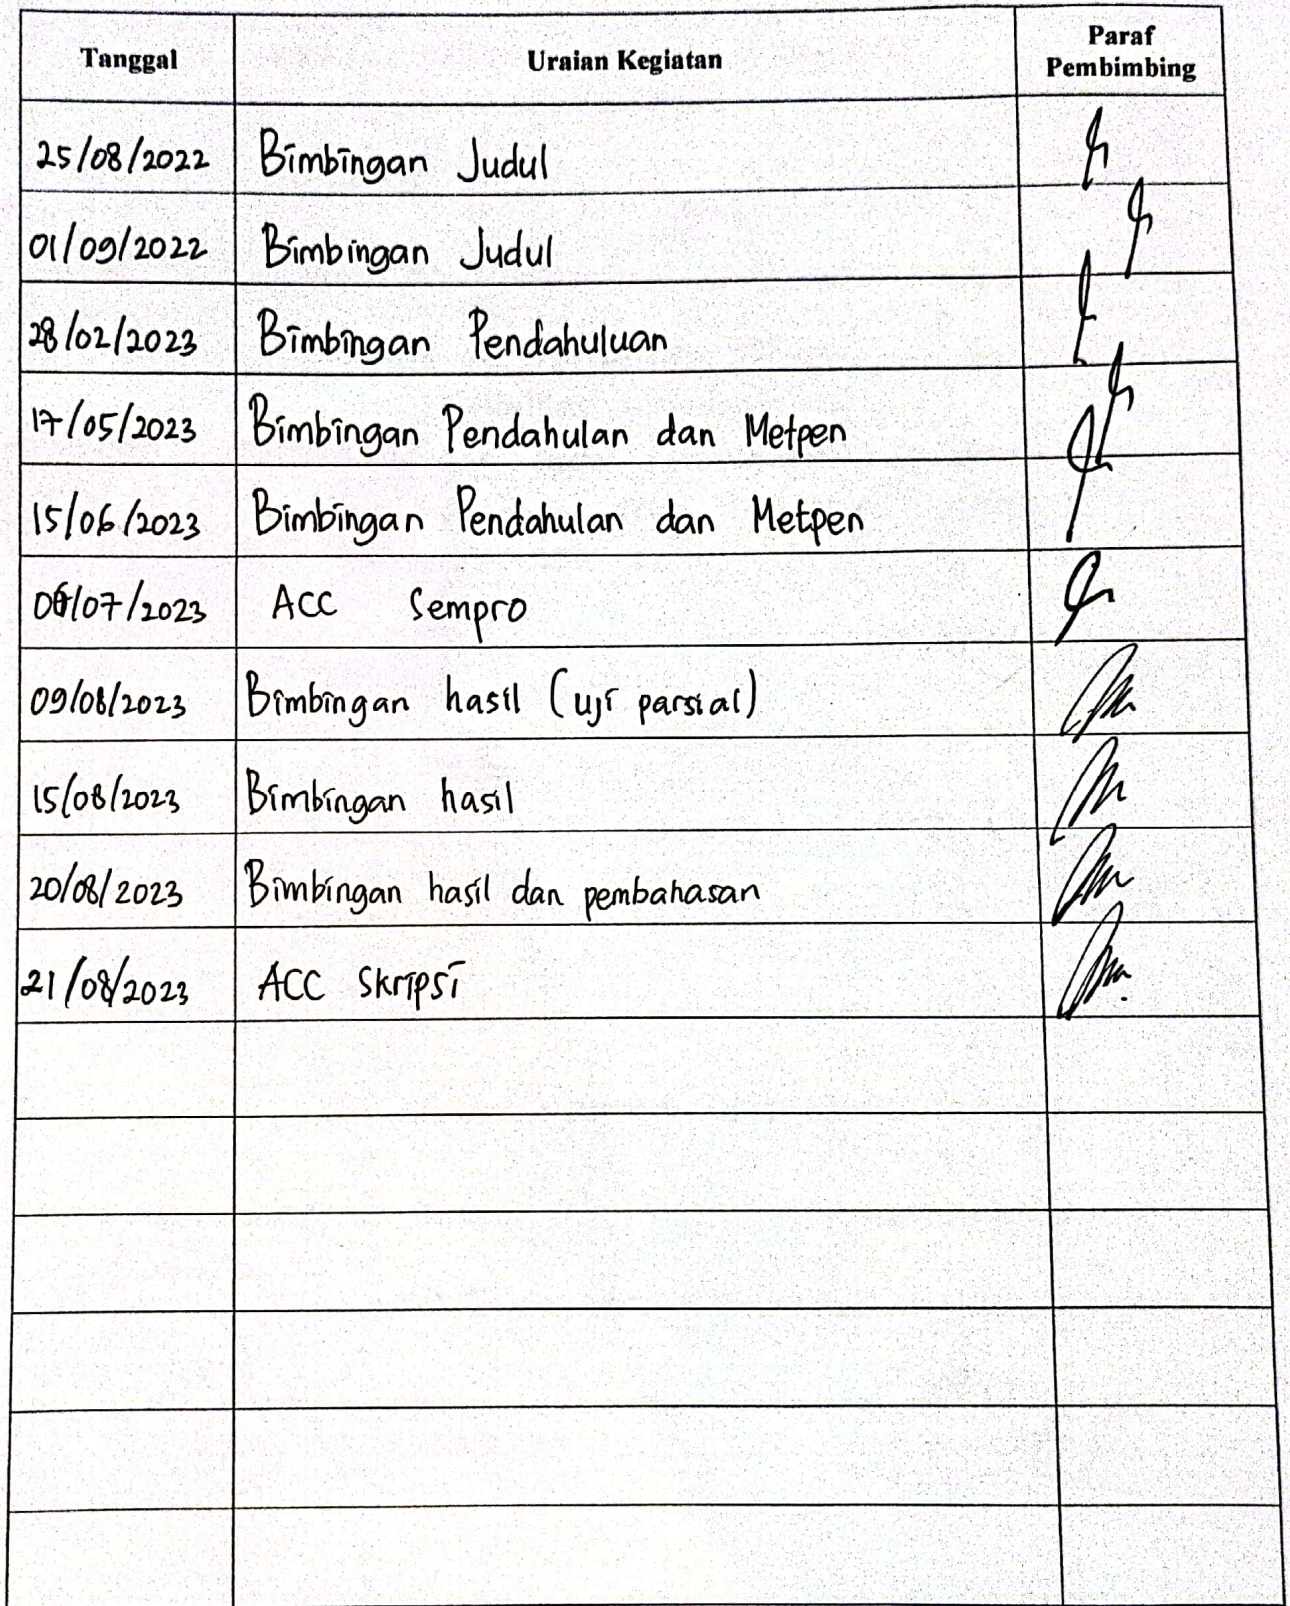 Tanggal Uraian Kegiatan Paraf
Pembimbing
25/08/2022 Bimbingan Judul
01/09/2022 Bimbingan Judul
28/02/2023 Bimbingan Pendahuluan
17/05/2023 Bimbingan Pendahulan dan Metpen
15/06/2023 Bimbingan Pendahulan dan Metpen
/07/2023 ACC Sempro
09/08/2023 Bimbingan hasil (uji parsial)
15/08/2023 Bimbingan hasil
20/08/2023 Bimbingan hasil dan pembahasan
21/08/2023 ACC Skripsi